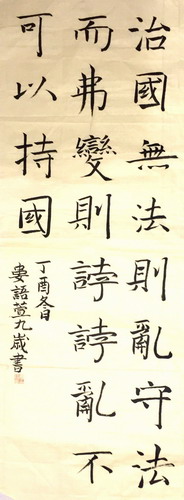 治國無法則亂守法
而弗變則誖誖亂不
可以持國
丁酉冬日
婁語萱九歲書